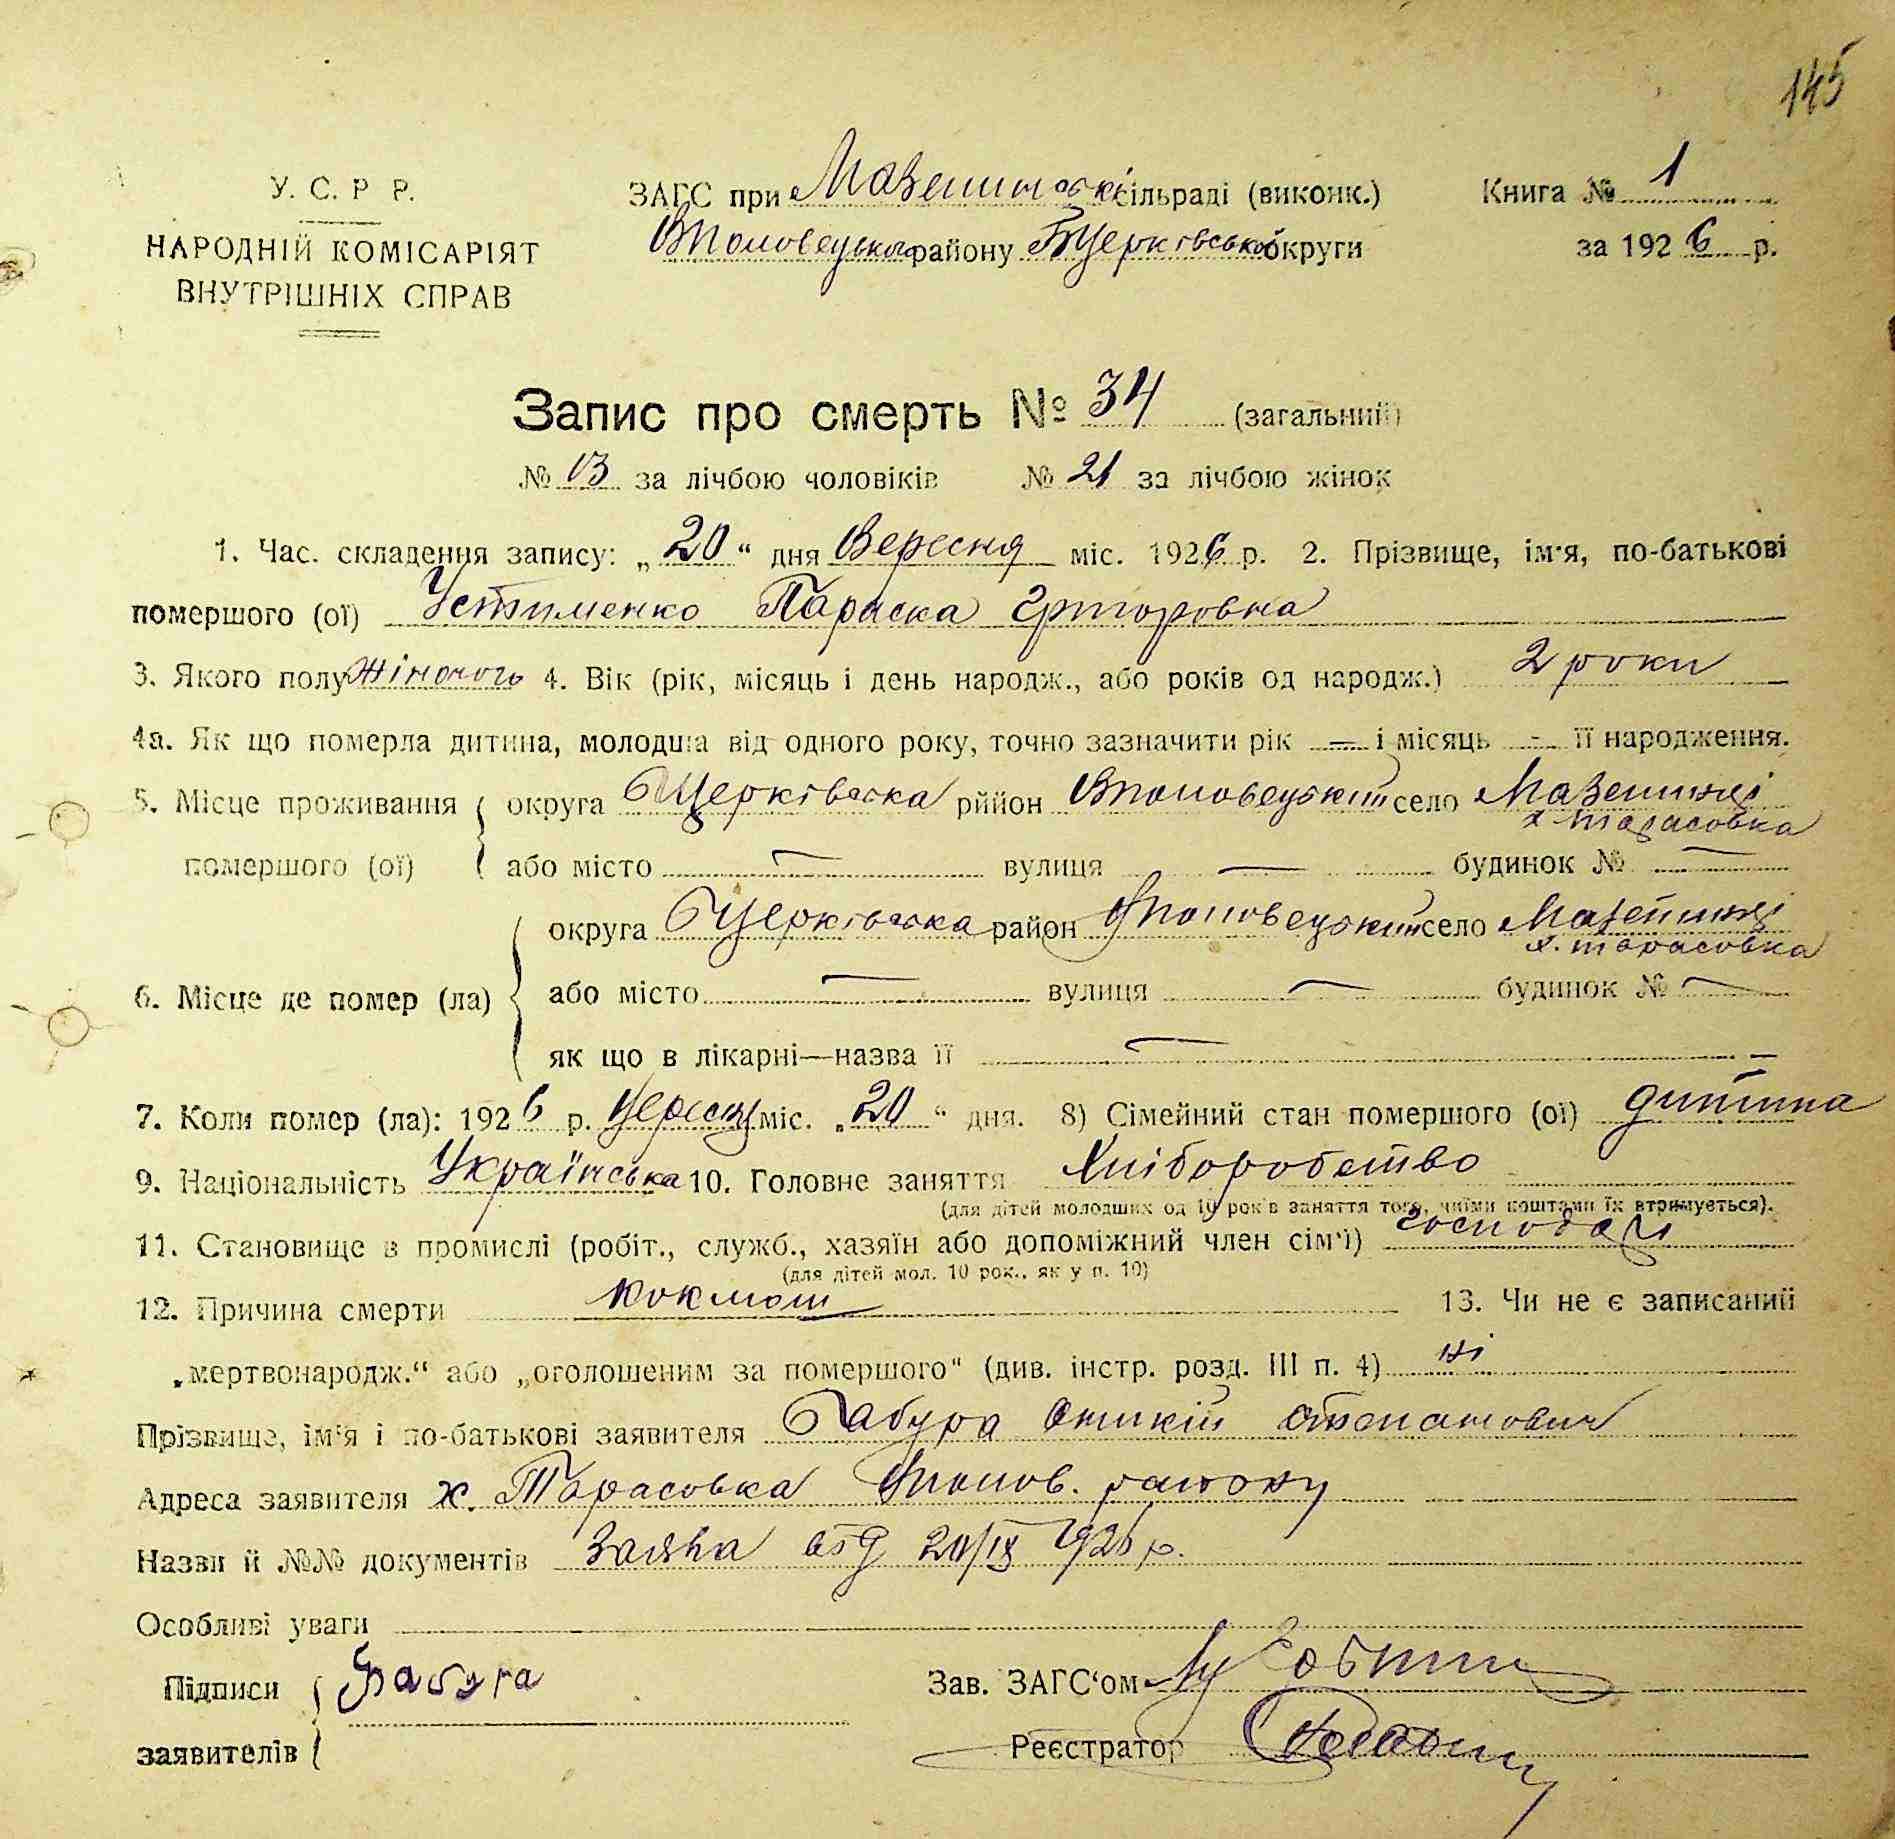 145
У. С. Р Р.
НАРОДНІЙ КОМІСАРІЯТ
ВНУТРІШНІХ СПРАВ
ЗАГС при Мазепинській сільраді (виконк.)
Книга № 1
району Бцерківської округи
за 1926 р.
Запис про смерть № 34 (загальний)
№ 13 за лічбою чоловіків № 21 за лічбою жінок
1. Час. складення запису: „20“ дня Вересня міс. 1926 р. 2. Прізвище, ім‘я, по-батькові
помершого (ої) Устименко Параска Григоровна
3. Якого полу жіночого 4. Вік (рік, місяць і день народж., або років од народж.) 2 роки
4а. Як що померла дитина, молодша від одного року, точно зазначити рік — і місяць - її народження.
5. Місце проживання округа Бцерківська рййон село Мазепинці
х. Тарасовка
помершого (ої) або місто — вулиця — будинок № —
округа Бцерківська район село Мазепинці
х. Тарасовка
6. Місце де помер (ла) або місто — вулиця — будинок № —
як що в лікарні—назва її —
7. Коли помер (ла): 1926 р. Вересня міс. „20“ дня. 8) Сімейний стан помершого (ої) дитина
9. Національність Українська 10. Головне заняття Хліборобство
(для дітей молодших од 10 рок‘в заняття того, чиїми коштами їх втримується).
11. Становище в промислі (робіт., служб., хазяїн або допоміжний член сім‘ї) господар
(для дітей мол. 10 рок., як у п. 10)
12. Причина смерти коклюш 13. Чи не є записаний
„мертвонародж.“ або „оголошеним за помершого“ (див. інстр. розд. III п. 4) ні
Прізвище, ім‘я і по-батькові заявителя Бабура
Адреса заявителя х. Тарасовка району
Назви й №№ документів Заява від 20/IX 1926 р.
Особливі уваги
Підписи Бабура
заявителів
Зав. ЗАГС‘ом
Реєстратор